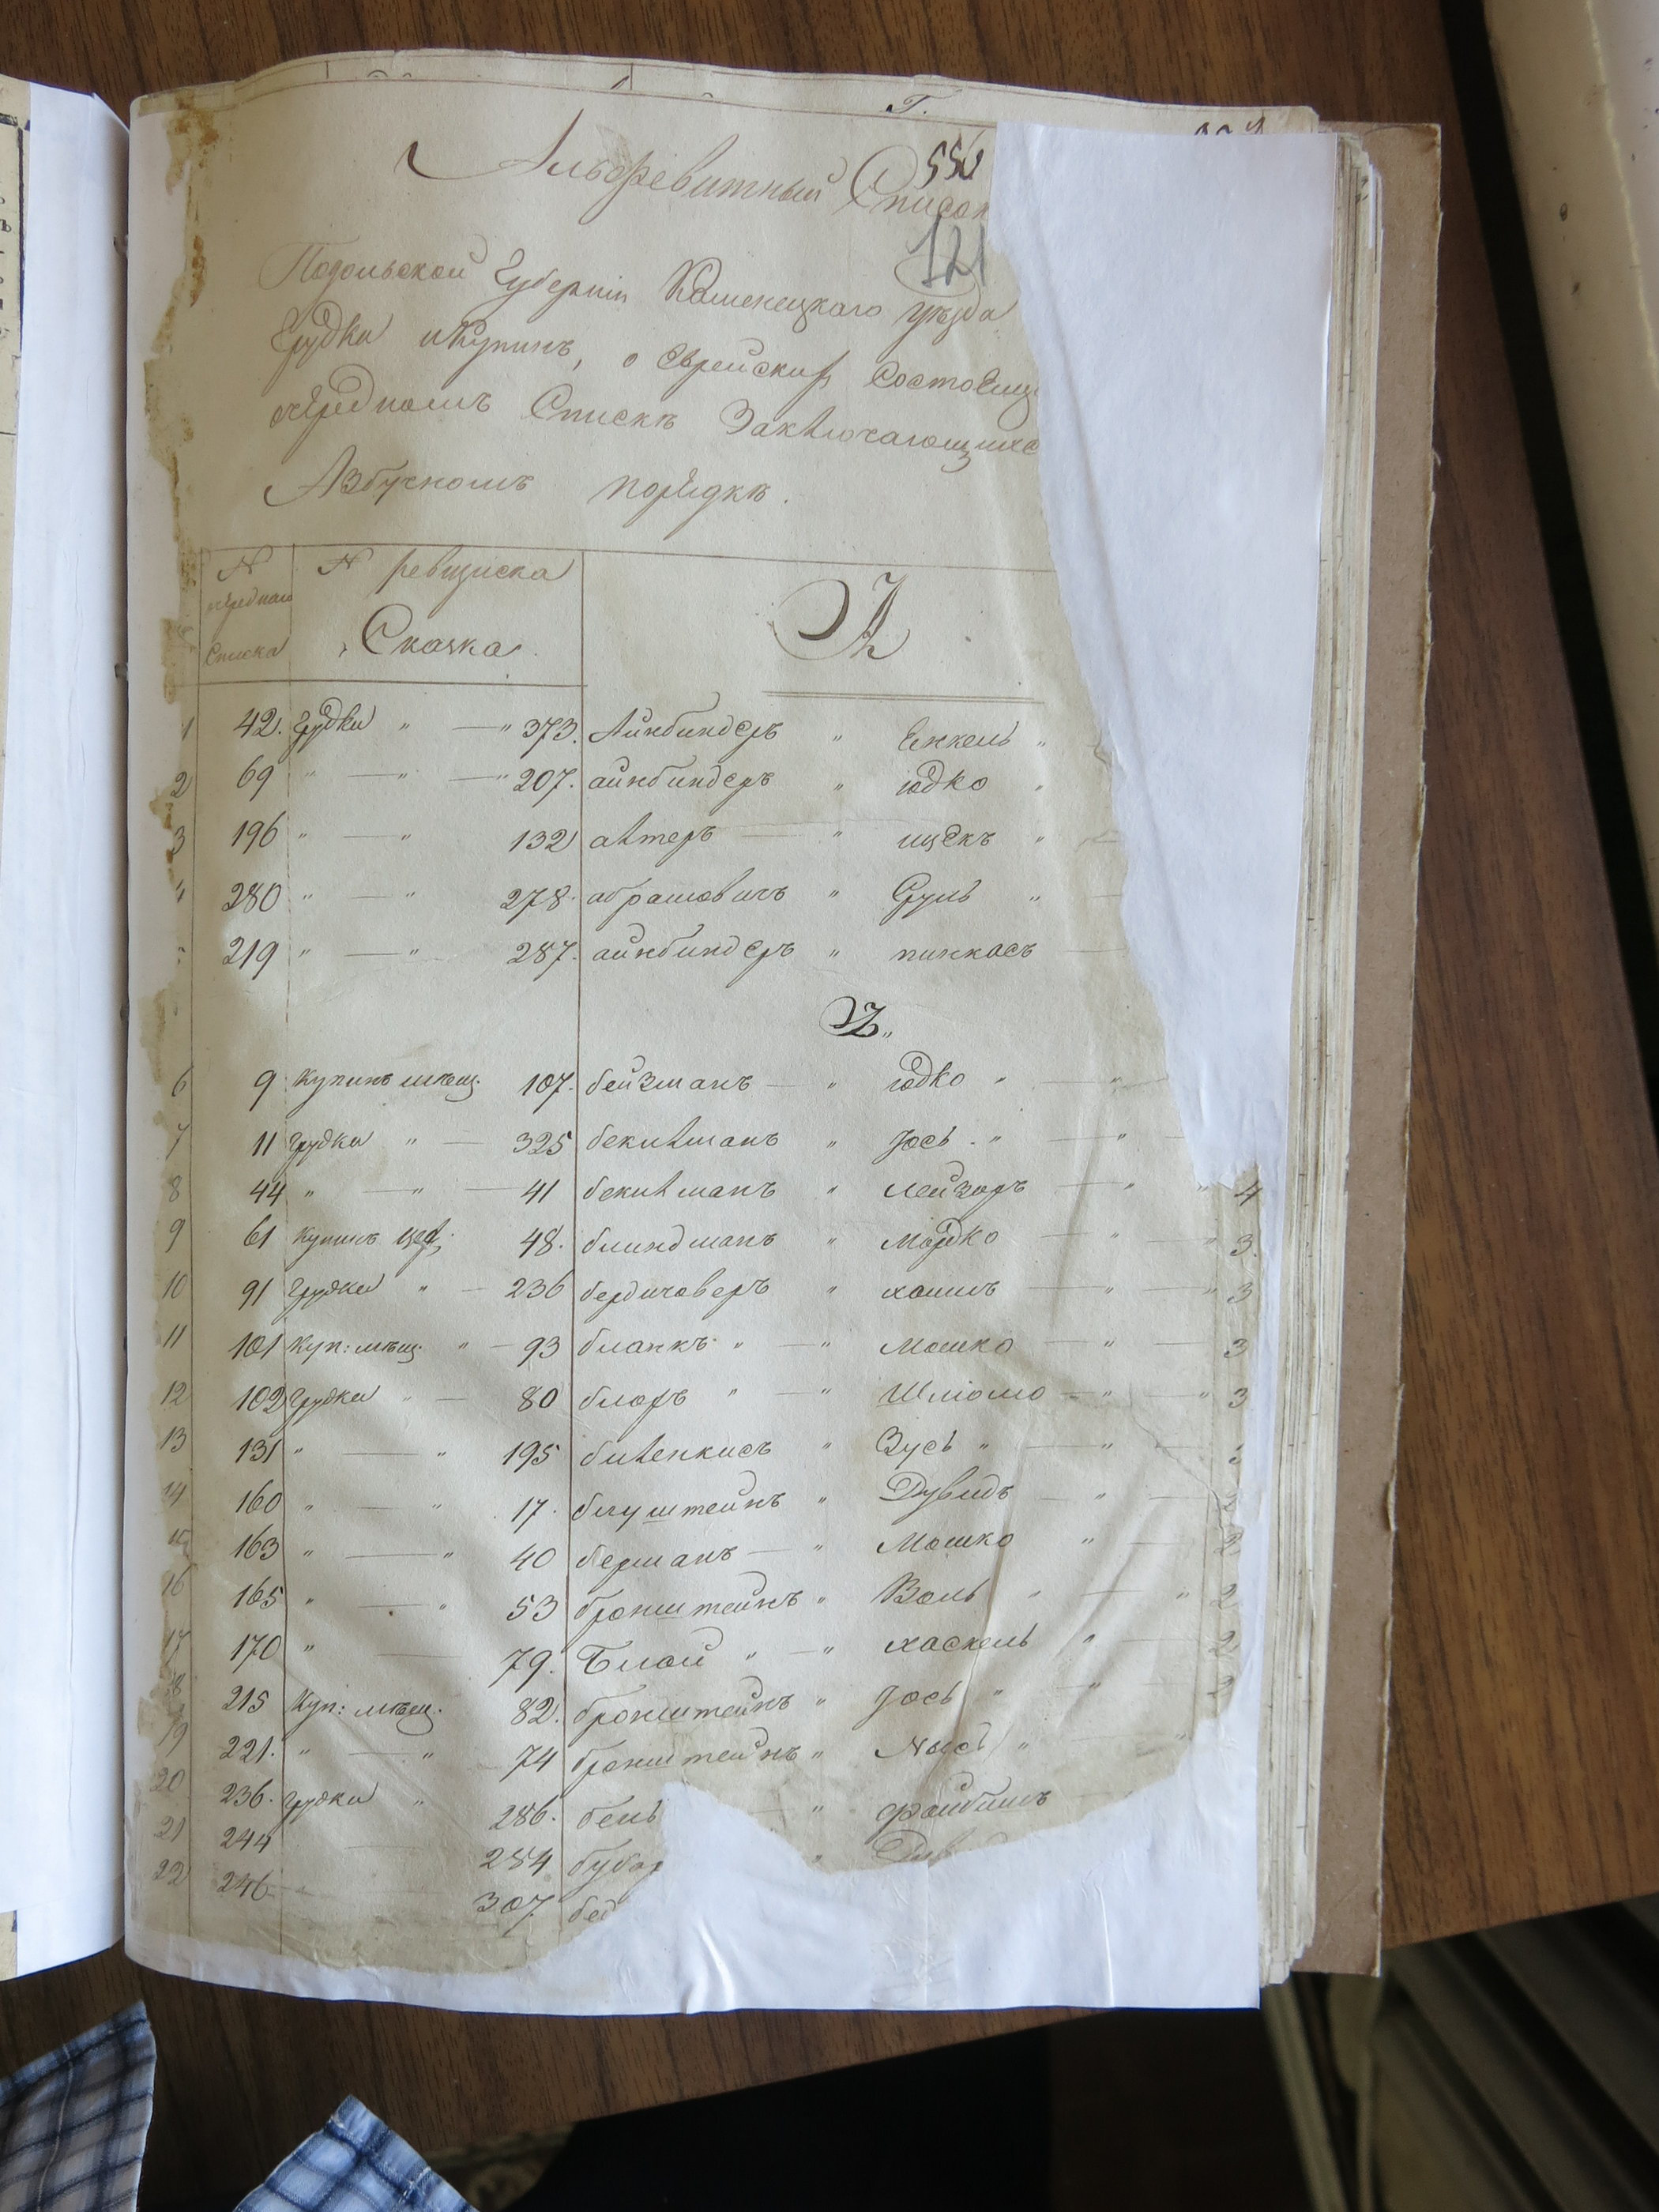 Г.
550
Альфевитный Списо
121
Подольской Губернии Каменецкаго уѣзда
Грудка и Купинъ, о Еврейских состоящ
очередномъ Спискѣ Заключающихс
Азбучномъ порядкѣ.
N очередного Списка N ревизска Сказка А
1 42. Грудка " — " 373. Айнбиндеръ " Енкель "
2 69 " — " — " 207. айнбиндеръ " юдко "
3 196 " — " 132 алтеръ — " ицекъ "
4 280 " — " 278. абрамовичъ " Сруль " —
219 " — " 287. айнбиндеръ " пинкасъ —
Б "
6 9 Купинъ мѣщ. 107. бейзманъ — " юдко " "
7 11 Грудка " — 325 бекилманъ " Іось " — " —
8 44 " — " — 41 бекилманъ " лейзоръ — " " 4
9 61 Купинъ 48. блиндманъ " Мордко — " — " 3.
10 91 Грудка " — 236 бердичоверъ " хаимъ — " — " 3
11 101 Куп: мѣщ. " — 93 бланкъ " — " Мошко — " — 3
12 102 Грудка " — 80 блоръ " — " Шліомо — " — " 3
13 131 " — " 195 биленкисъ " Зусь " — " —
14 160 " — " 17. блуштейнъ " Дувидъ — " — 2
15 163 " — " 40 берманъ — " Мошко " — 2
16 165 " — " 53 бронштейнъ " Воль " — " 2
17 170 " — 79. Блой " — " хаскель " — 2
18 215 Куп: мѣщ. 82. бронштейнъ " Іось " — " 2
19 221. " — " 74 бронштейнъ " "
20 236. Грудка " 286. бень — " файбишъ
21 244 — 254 бубор " Дув
22 246 307. бед